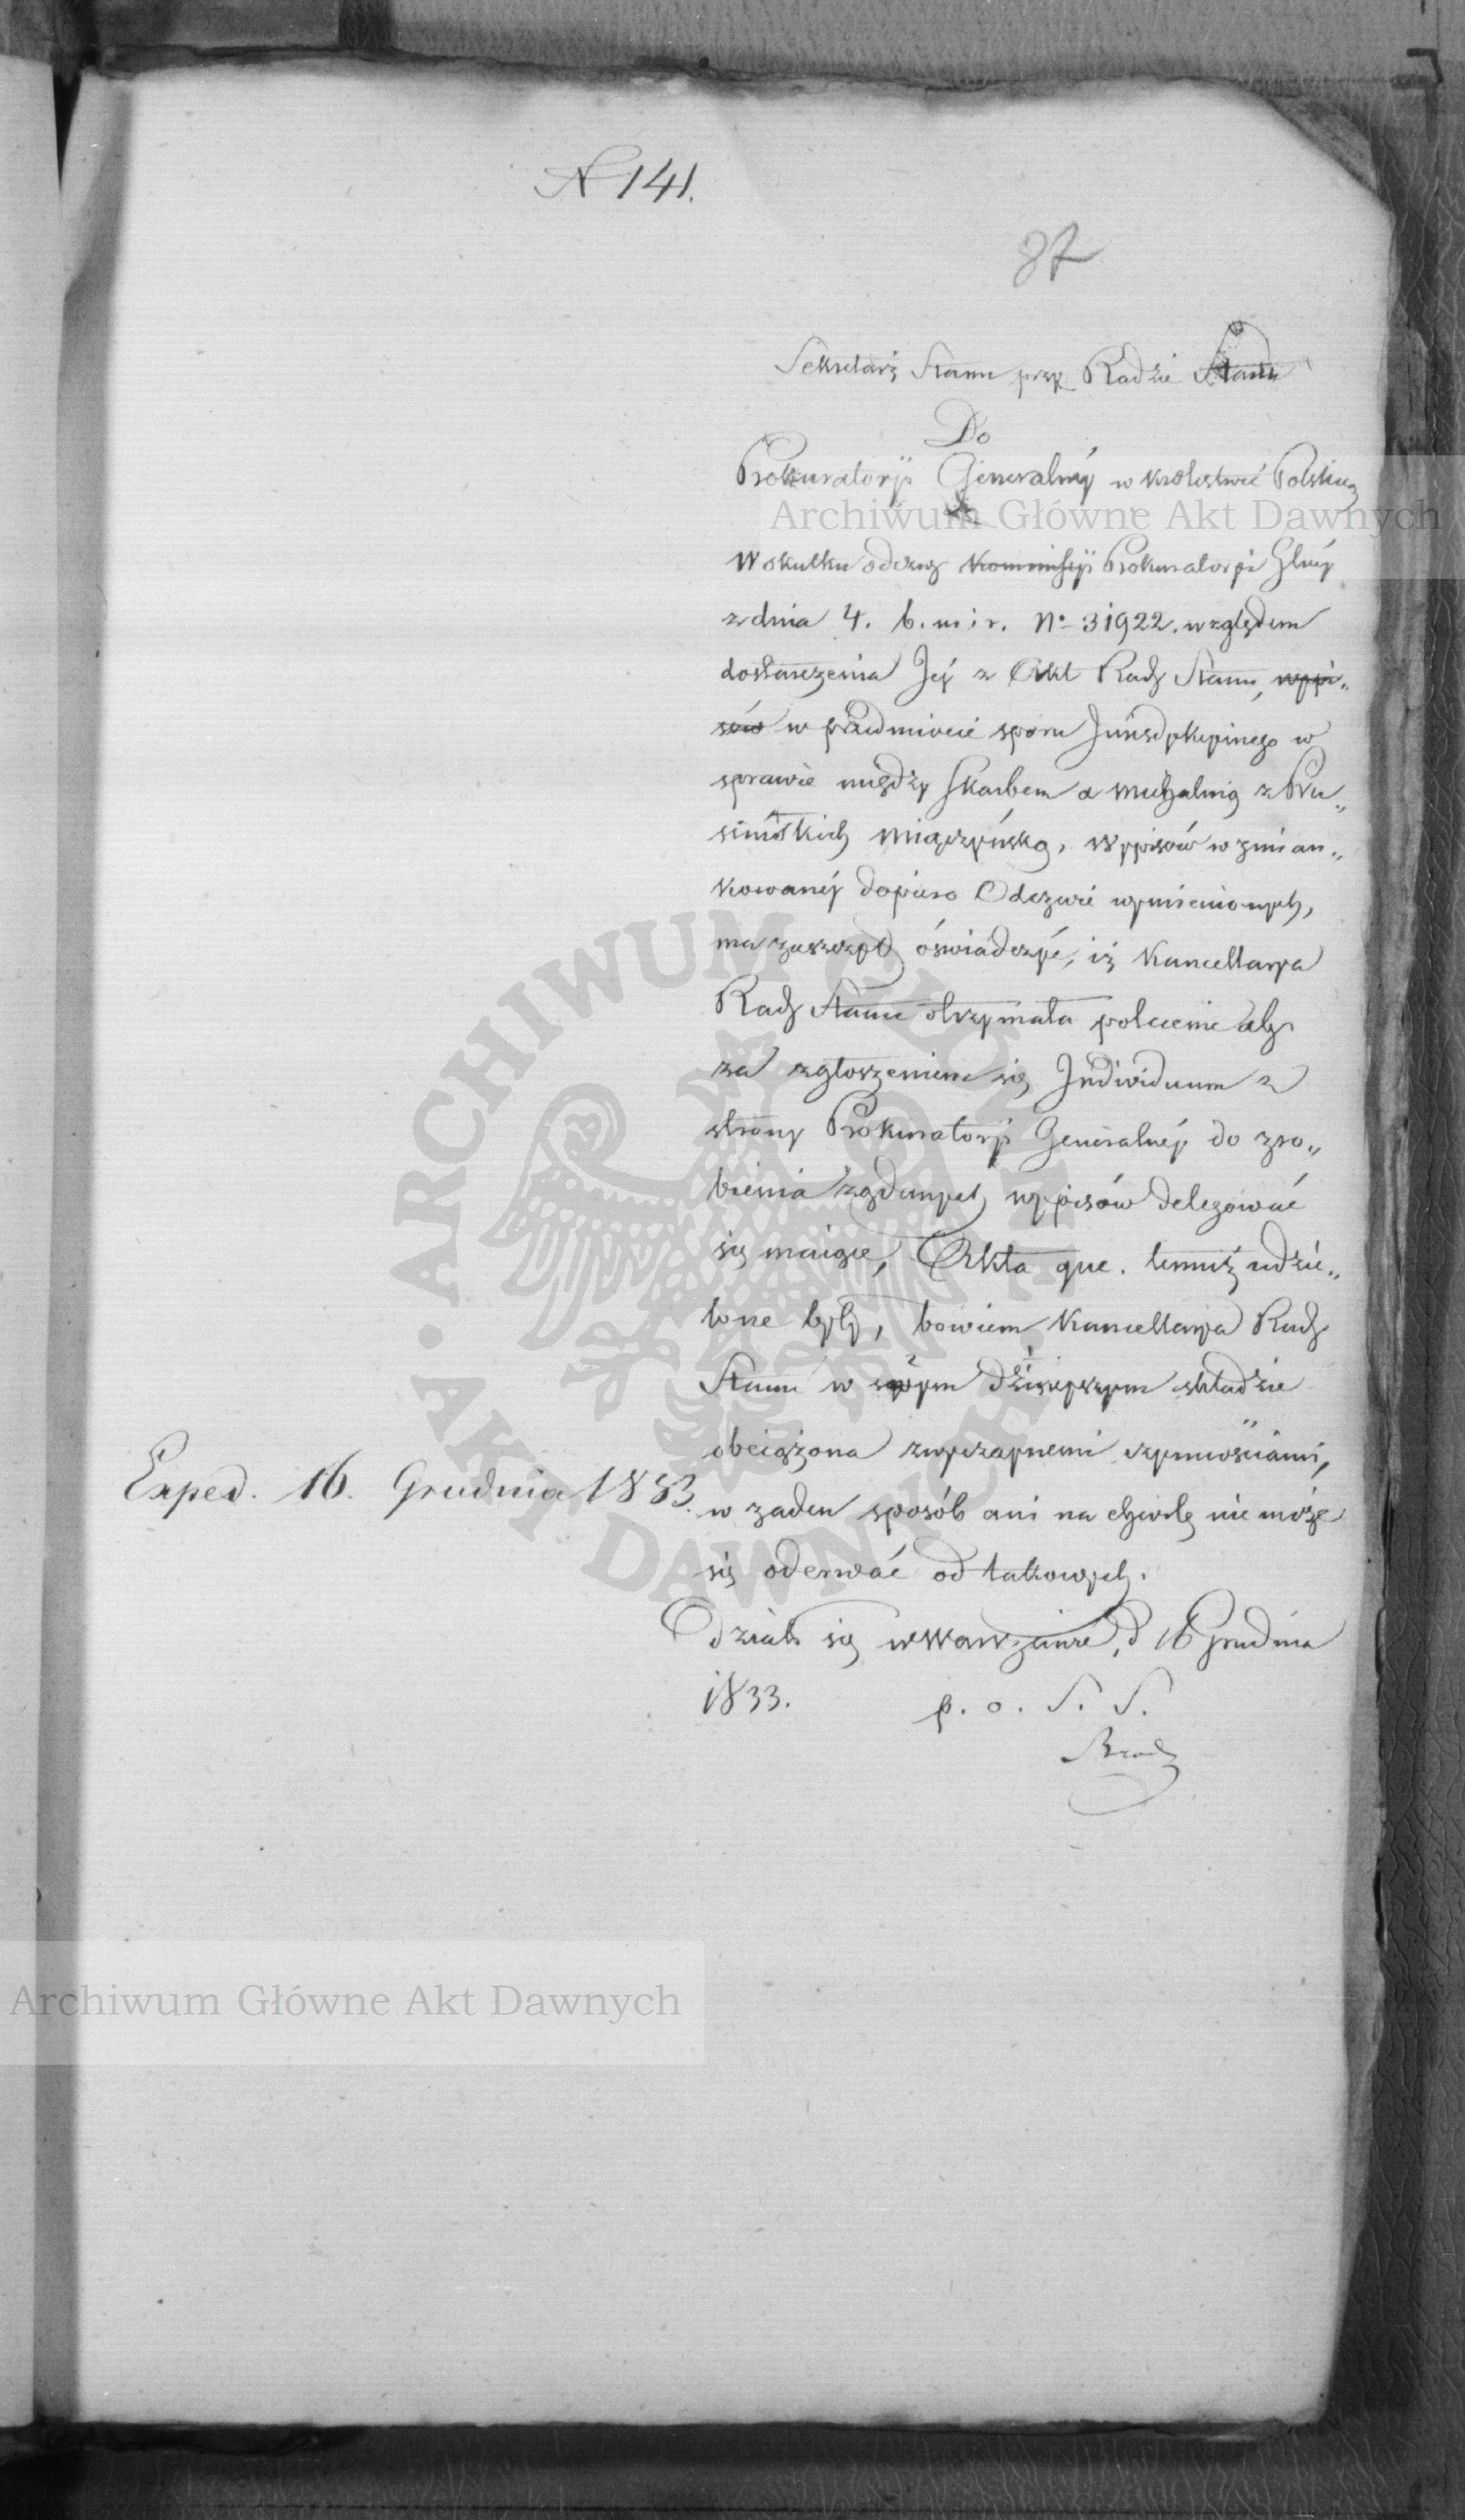 N 141.
87
Sekretarz Stanu przy Radzie Stanu
Do
Prokuratoryi Generalnéy w Królestwie Polskiem
W skutku odezwy Kommissyi Prokuratoryi Glnéy
z dnia 4. b. m. i r. No 31922. względem
dostarczenia Jéy z Akt Rady Stanu, wypi„
sów w przedmiocie sporu Jurisdykcyinego w
sprawie między Skarbem a Michaliną z Pru„
simskich Miączyńską, wypisów wzmian„
kowanéy dopiero Odezwie wymienionych,
ma zaszczyt oświadczyć, iż Kancellarya
Rady Stanu otrzymała polecenie aby
za zgłoszeniem się Individuum z
strony Prokuratoryi Generalnéy do zro„
bienia żądanych wypisów delegować
się maiące, Akta que. temuż udzie„
lone były, bowiem Kancellarya Rady
Stanu w swym dzisieyszym składzie
obciążona zwyczaynemi czynnościami,
w żaden sposób ani na chwilę nie może
się oderwać od takowych.
Działo się w Warszawie, d 16 Grudnia
1833. p. o. S. S.
Exped. 16. Grudnia 1833.
Archiwum Główne Akt Dawnych
Archiwum Główne Akt Dawnych
ARCHIWUM GŁÓWNE • AKT DAWNYCH •